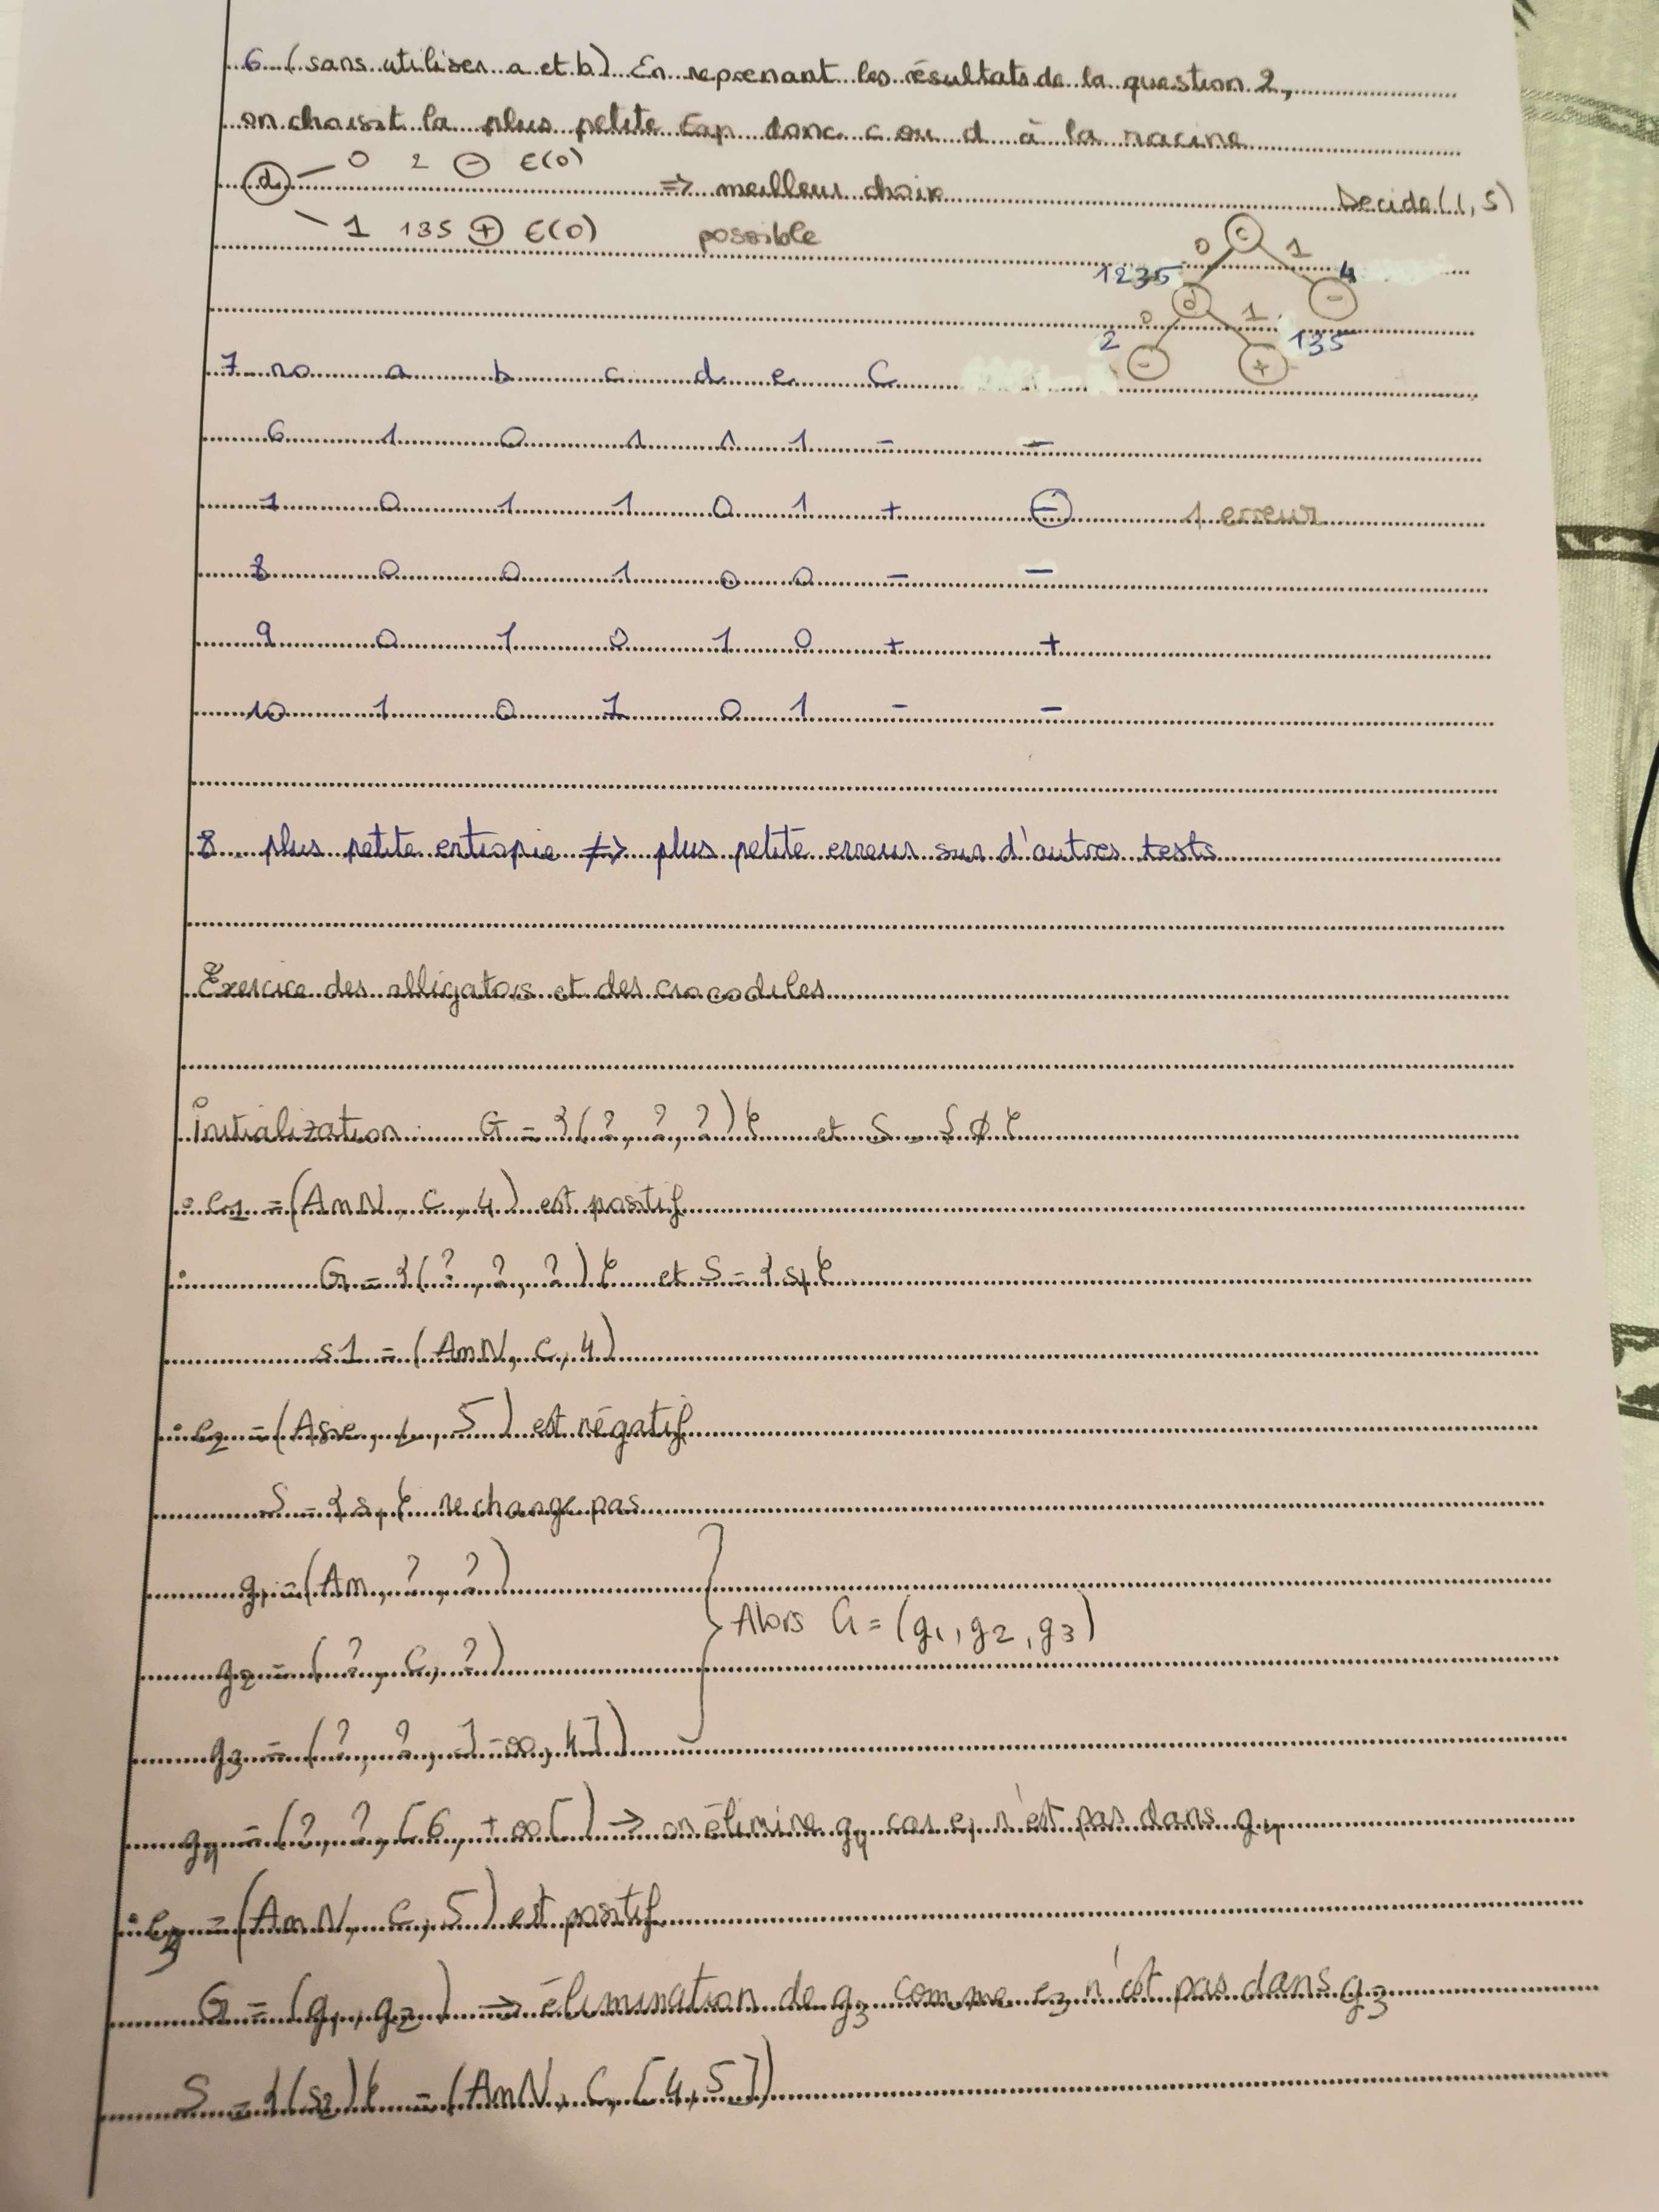 6 (sans utiliser a et b) En reprenant les résultats de la question 2,
on choisit la plus petite Eap donc c ou d à la racine
d 0 2 - E(0) => meilleur choix Decide(1,5)
1 135 + E(0) possible
c 0 1
1235 d 4 -
0 1
2 - + 135
7 no a b c d e C
6 1 0 1 1 1 - -
7 0 1 1 0 1 + - 1 erreur
8 0 0 1 0 0 - -
9 0 1 0 1 0 + +
10 1 0 1 0 1 - -
8 plus petite entropie ≠> plus petite erreur sur d'autres tests
Exercice des alligators et des crocodiles
Initialization : G = {(?, ?, ?)} et S = {ø}
• e1 = (AmN, C, 4) est positif
• G = {(?, ?, ?)} et S = {s1}
s1 = (AmN, C, 4)
• e2 = (Asie, L, 5) est négatif
S = {s1} ne change pas
g1 = (Am, ?, ?)
Alors G = (g1, g2, g3)
g2 = (?, C, ?)
g3 = (?, ?, ]-∞, 4])
g4 = (?, ?, [6, +∞[) → on élimine g4 car e1 n'est pas dans g4
• e3 = (AmN, C, 5) est positif
G = (g1, g2) → élimination de g3 comme e3 n'est pas dans g3
S = {(s2)} = (AmN, C, [4, 5])